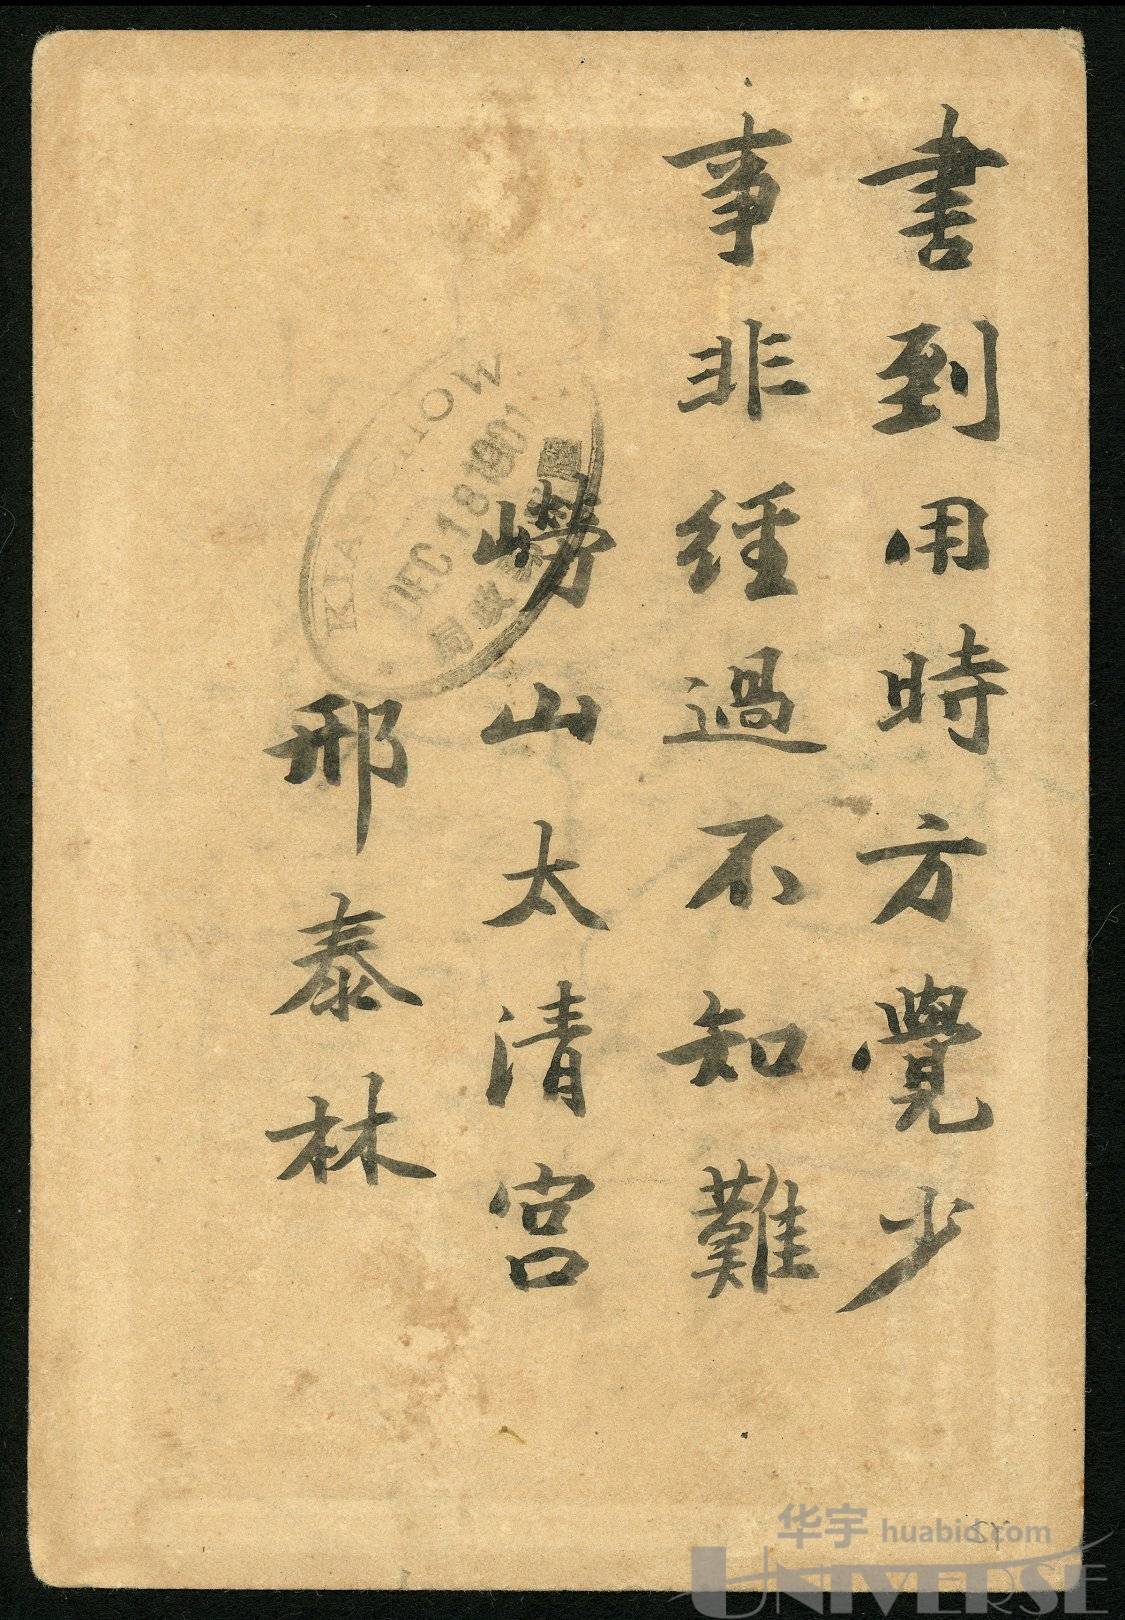 書到用時方覺少
事非經過不知難
嶗山太清宮
邢泰林
KIAOCHOW
DEC 18 1901
郵政局
华宇 huabid.com
UNIVERSE